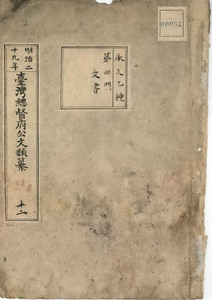 永久乙種
第四門
文書
明治二
十九年
臺灣總督府公文類纂
十二